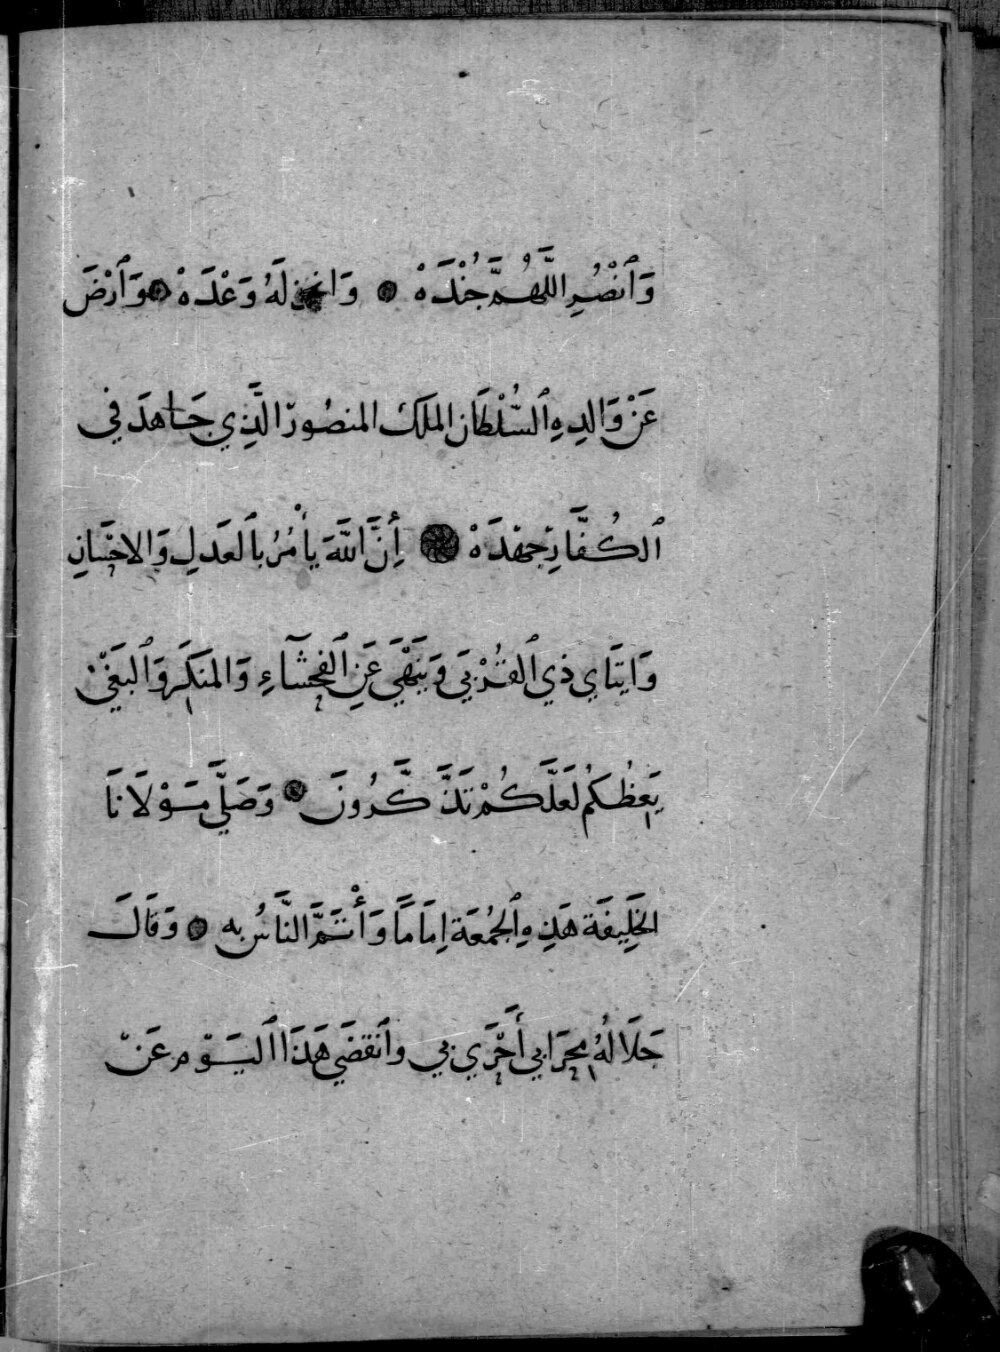 وَٱنْصُرِ اللَّهُمَّ جُنْدَهْ ۞ وَانجز لَهُ وَعْدَهْ ۞ وَٱرْضَ
عَنْ وَالدِهِ ٱلسُّلْطَان الملَك المنصُورْ الَّذِي جَاهدَ في
ٱلكُفَّارِ جهْدَهْ ۞ أِنَّ اللَّهَ يأْمُرُ بٱلعَدلِ وَالاحْسَانِ
وَايتَاي ذي ٱلقُرْبَي وَيَنْهَي عَنِ ٱلفحْشَآءِ وَالمنكَر وَٱلبَغْي
يَعظُكُم لَعَلَّكُمْ تَذَّكَّرُونَ ۞ وَصَلَّي مَوْلَانَا
الخَلِيفَة هَذِهِ ٱلجُمُعَة اِمَامًا وَأْتَمَّ النَّاسُ به ۞ وَقَالَ
جَلَالهُ مِحرَابي أَحْرَي بي وٱنقضَي هَذَا ٱليَوْم عَنْ